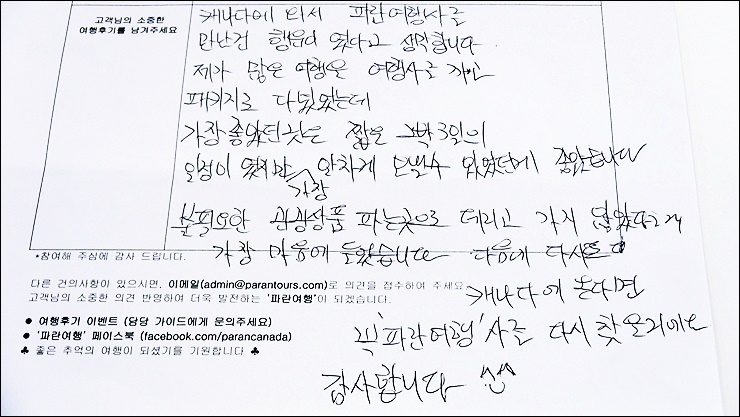 고객님의 소중한
여행후기를 남겨주세요
캐나다에 와서 파란여행사를
만난건 행운이 였다고 생각합니다
제가 많은 여행을 여행사로
패키지로 다녔었는데
가장 좋았던 것은 짧은 3일의
일정이 였지만 알차게 였던게 좋았습니다
가장
불필요한 관광상품 파는곳으로 데리고 가지 않았다고
가장 마음에 들었습니다 다음에 다시
*참여해 주심에 감사 드립니다.
다른 건의사항이 있으시면, 이메일(admin@parantours.com)로 의견을 접수하여 주세요
고객님의 소중한 의견 반영하여 더욱 발전하는 '파란여행'이 되겠습니다.
캐나다에 온다면
● 여행후기 이벤트 (담당 가이드에게 문의주세요)
꼭 '파란여행'사를 다시 찾을거에요
● '파란여행' 페이스북 (facebook.com/parancanada)
♣ 좋은 추억의 여행이 되셨기를 기원합니다 ♣
감사합니다 ^^